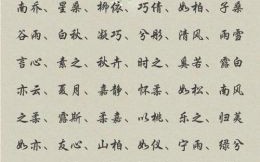 南乔、星桑、柳依、巧倩、如柏、子桑
谷雨、白秋、凝巧、兮彤、清风、雨雪
言心、素之、秋卉、时之、奚若、露白
亦云、夏月、嘉静、怀柔、如松、南风
之柔、露斯、柔嘉、以桃、乐之、归荑
如亦、友心、山柏、如仪、宁雨、绿兮